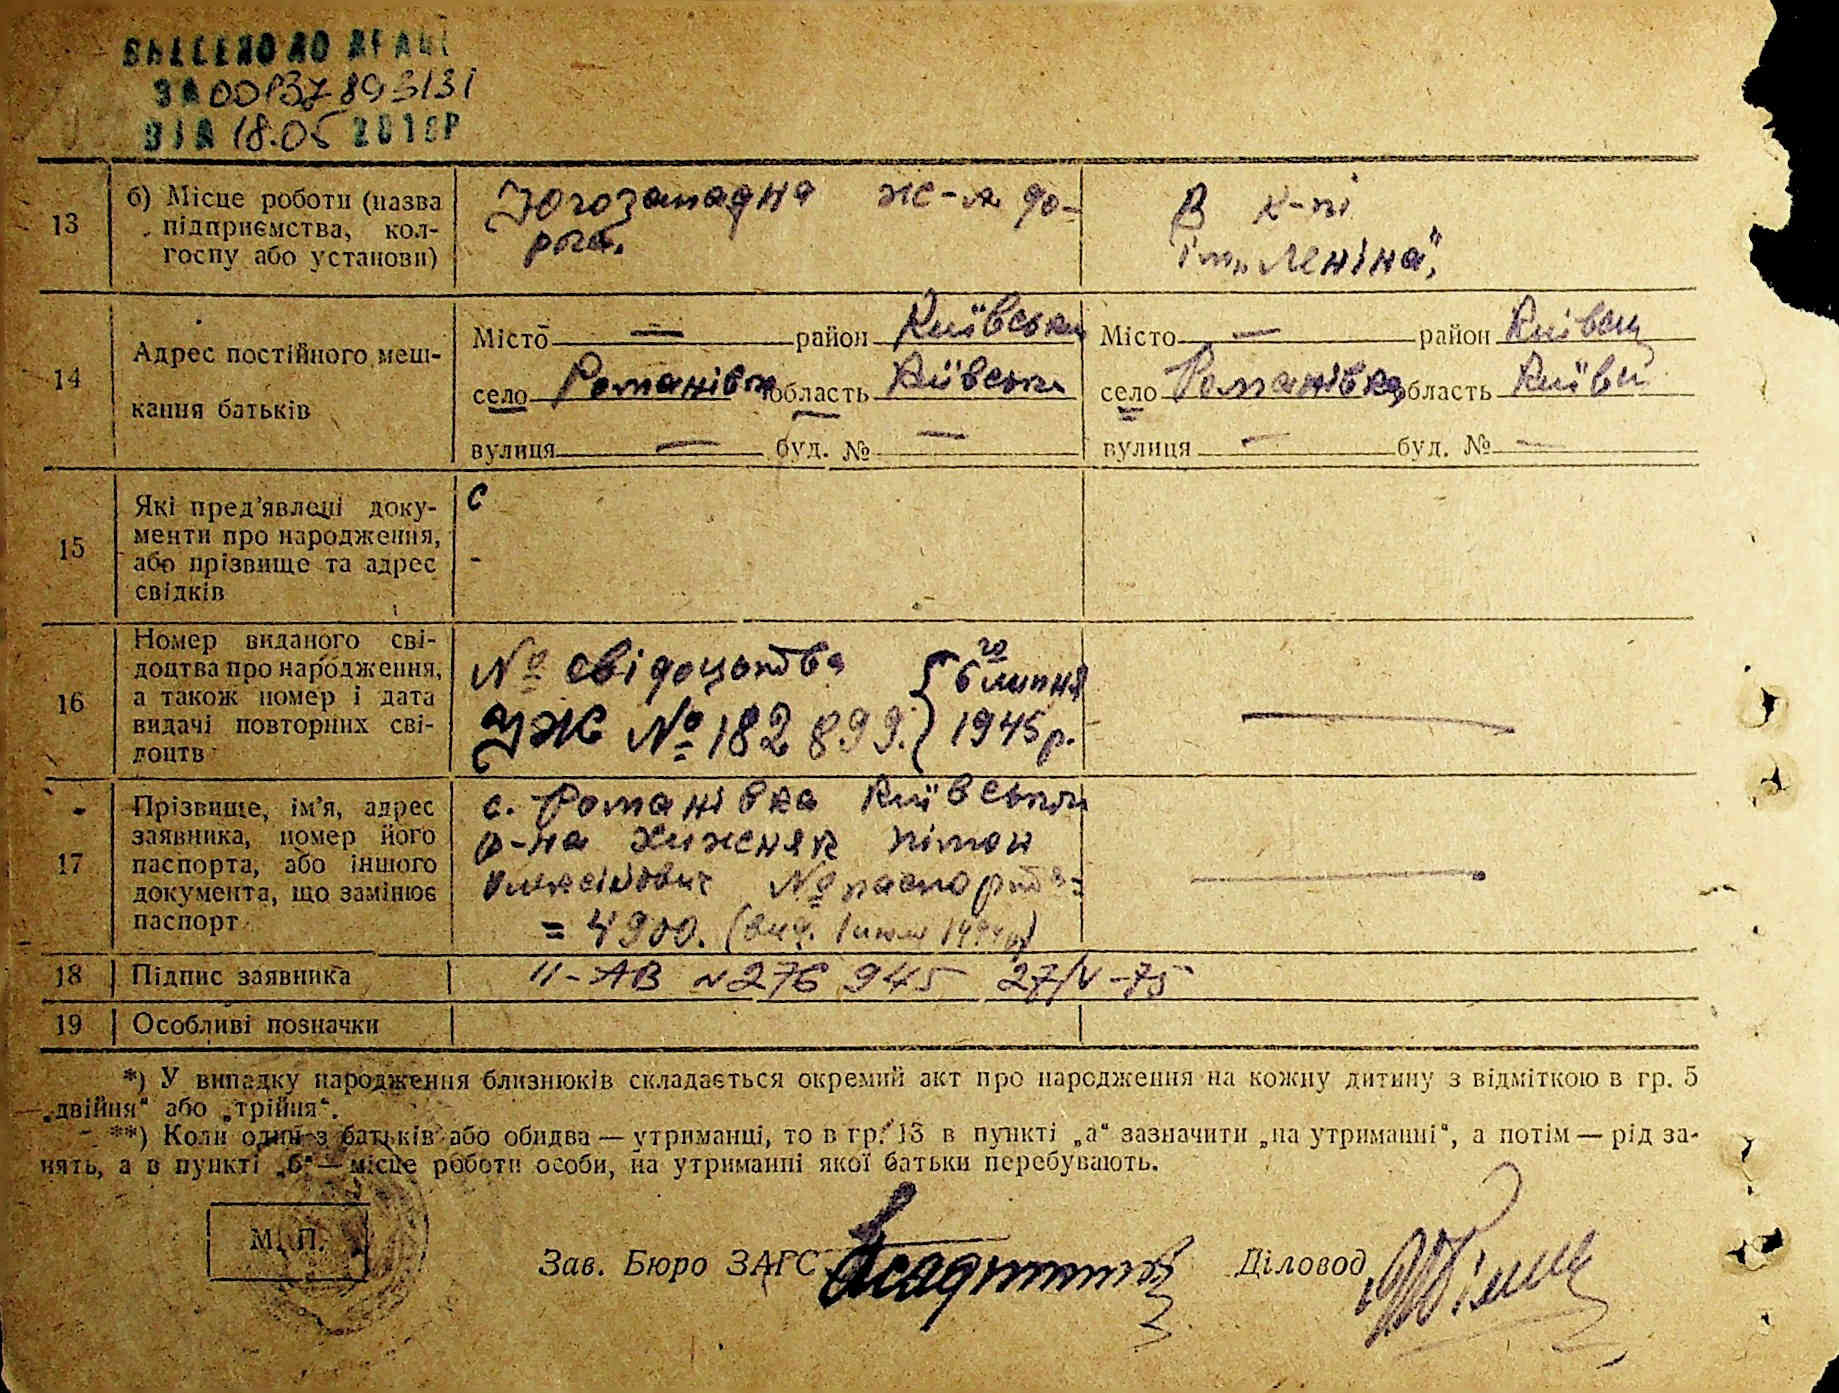 ВНЕСЕНО ДО ДРАЦС
ЗА 00137893131
ВІД 18.05 2018Р
13 б) Місце роботи (назва підприємства, колгоспу або установи)
Югозападна ж-а до-
рога.
В к-пі
ім. „Леніна“,
14 Адрес постійного меш-
кання батьків
Місто — район Київськи
село Романівка область Київськи
вулиця — буд. № —
Місто — район Київськ
село Романівка область Київ
вулиця — буд. № —
15 Які пред’явлені доку-
менти про народження,
або прізвище та адрес
свідків
С
-
16 Номер виданого сві-
доцтва про народження,
а також номер і дата
видачі повторних сві-
доцтв
№ свідоцьтва
УЖ № 182899.
6го липня
1945 р.
17 Прізвище, ім’я, адрес
заявника, номер його
паспорта, або іншого
документа, що замінює
паспорт
с. Романівка Київськи
р-на Хижняк
№ паспорта =
= 4900.
18 Підпис заявника
II-АВ N276945 27/V-75
19 Особливі позначки
*) У випадку народження близнюків складається окремий акт про народження на кожну дитину з відміткою в гр. 5
„двійня“ або „трійня“.
**) Коли один з батьків або обидва — утриманці, то в гр. 13 в пункті „а“ зазначити „на утриманні“, а потім — рід за-
нять, а в пункті „б“ — місце роботи особи, на утриманні якої батьки перебувають.
М. П.
Зав. Бюро ЗАГС
Діловод